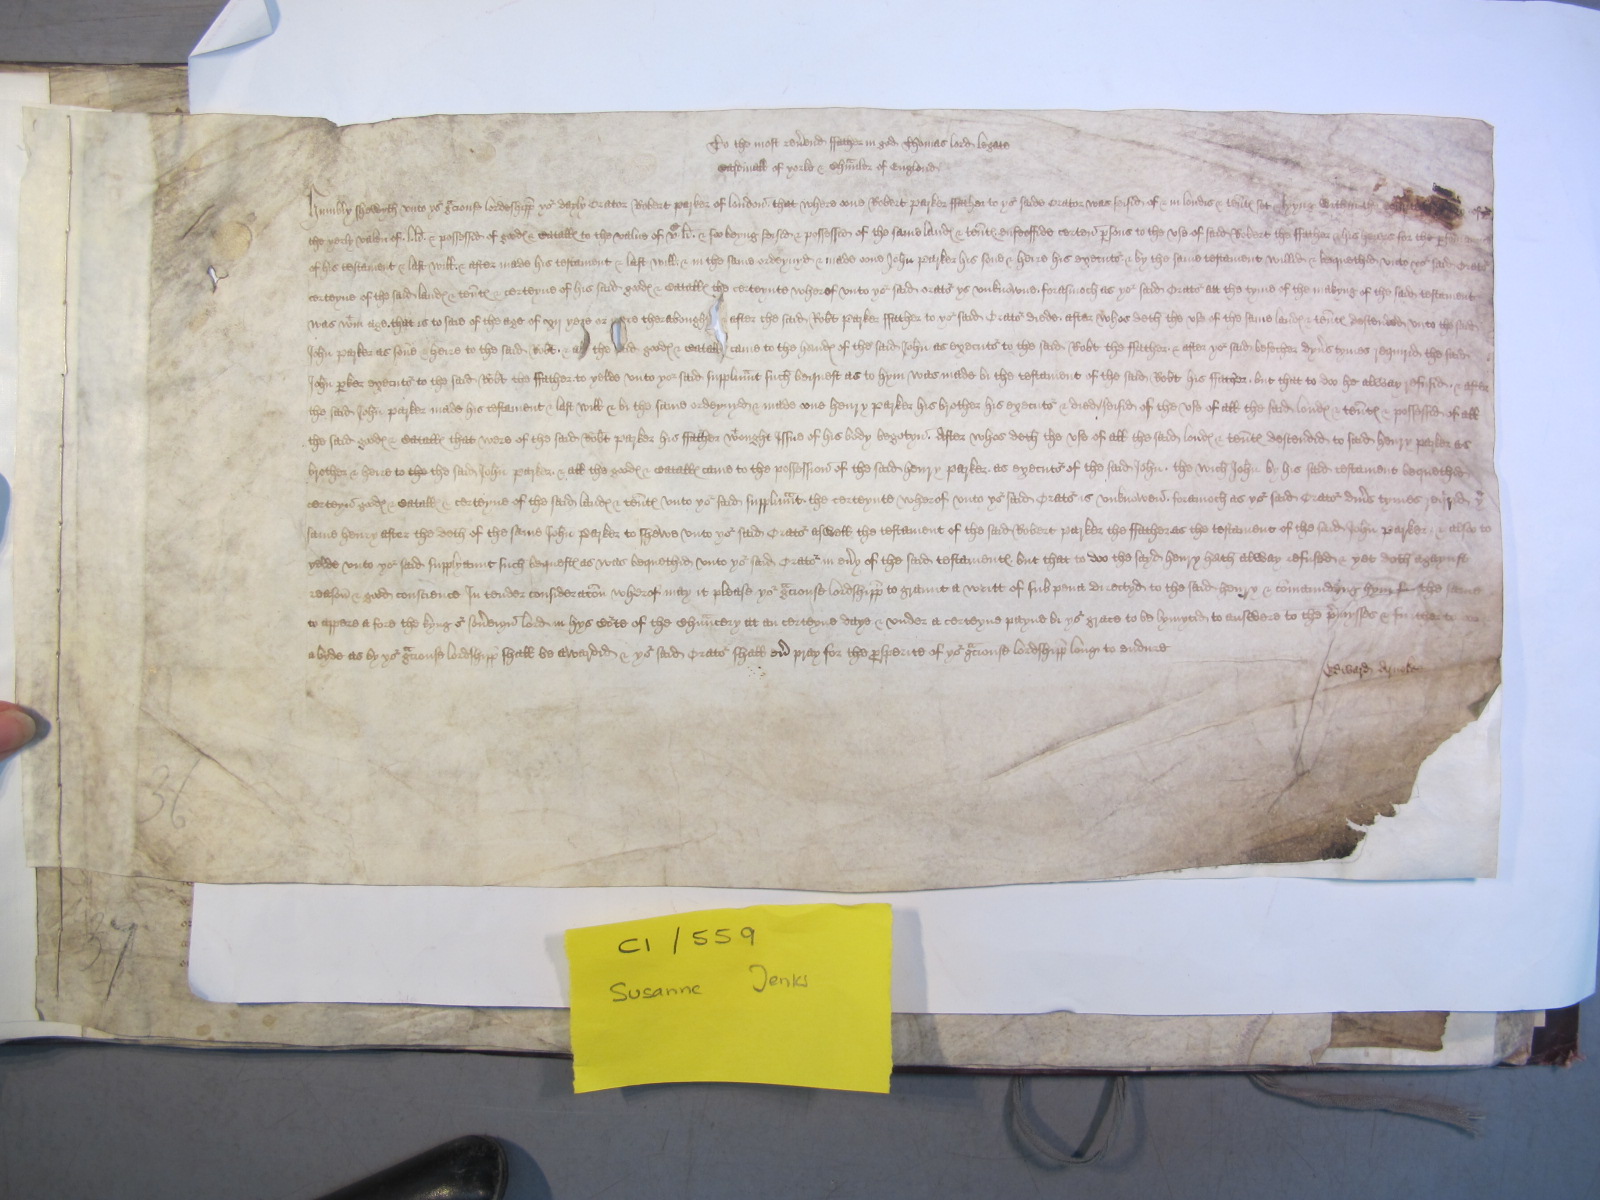 To the most rev'end ffather in god Thomas lord legate
Cardinall of yorke & Chaunceler of Englond
Humbly sheweth unto yor g'ciouse lordeshipp yor dayly Orator Robert parker of london that where one Robert parker ffather to yor saide Orator was seised of & in londes & ten'tes set & lying
the yerly value of & possessed of godes & catalles to the value of & soo beyng seised & possessed of the same landes & ten'tes enfeoffede certen p'sons to the use of said Robert the ffather & his heires for the
of his testament & last will & after made his testament & last will & in the same ordeynyd & made one John parker his sone & heire his executor & by the same testament willed & bequethed unto yor said Orator
certeyne of the said landes & ten'tes & certeyne of his said godes & catalles the certeynte wherof unto yor said orator ys unknowne forasmoch as yor said Orator att the tyme of the makyng of the said testament
was w'in age that is to saie of the age of xij yere or there aboughtes after the said Rob't parker ffather to yor said Orator diede after whos deth the use of the same landes & ten'tes descended unto the said
John parker as sone & heire to the said Rob't & all the said godes & catalles came to the handes of the said John as executor to the said Rob't the ffather & after yor said besecher dyv's tymes requirid the said
John p'ker executor to the said Rob't the ffather to yelde unto yor said suppliaunt such bequest as to hym was made bi the testament of the said Rob't his ffather but that to doo he allway refused & after
the said John parker made his testament & last will & bi the same ordeynyd & made one henry parker his brother his executor & died seised of the use of all the said londes & ten'tes & possessed of all
the said godes & catalles that were of the said Rob't parker his ffather w'ought issue of his body begotyn After whos deth the use of all the said londes & ten'tes descended to said henry parker as
brother & heire to the the said John parker & all the godes & catalles came to the possession of the said henry parker as executor of the said John the wich John by his said testament bequethed
certeyn godes & catalles & certeyne of the said landes & ten'tes unto yor said suppliaunt the certeynte wherof unto yor said Orator is unknowen foramoch as yor said Orator div's tymes
same henry after the deth of the same John Parker to shewe unto yor said Orator aswell the testament of the said Robert parker the ffather as the testament of the said John parker & also to
yelde unto yor said supplyaunt such bequestes as was bequethed unto yor said Orator in ev'y of the said testamentes but that to doo the sayd henry hath allway refused & yet doth agaynst
reason & good conscience In tender consideracion wherof may it please yor g'ciouse lordshipp to graunt a writt of sub pena directyd to the said henry & comaundyng hym the same
to appere a fore the kyng or sov'eyn lord in hys Court of the Chauncery at an certeyne daye & under a certeyne payne bi yor grace to be lymytid to answere to the p'mysses & further to
abyde as by yor g'ciouse lordshipp shall be awardid & yor said Orator shall ev' pray for the p'sperite of yor g'ciouse lordshipp long to endure
Edward
36
37
C1/559
Susanne Jenks